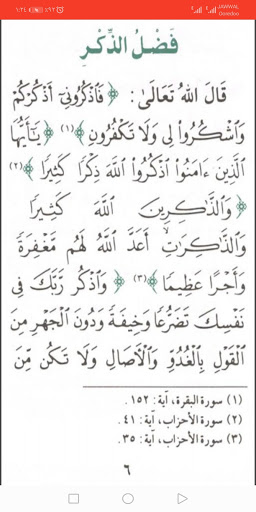 JAWWAL
Ooredoo
فَضْلُ الذِّكْرِ
قَالَ اللهُ تَعَالَى : ﴿ فَاذْكُرُونِي أَذْكُرْكُمْ
وَاشْكُرُوا لِي وَلَا تَكْفُرُونِ ﴾(١) ﴿ يَا أَيُّهَا
الَّذِينَ ءَامَنُوا اذْكُرُوا اللَّهَ ذِكْرًا كَثِيرًا ﴾(٢)
﴿ وَالذَّاكِرِينَ اللَّهَ كَثِيرًا
وَالذَّاكِرَاتِ أَعَدَّ اللَّهُ لَهُم مَّغْفِرَةً
وَأَجْرًا عَظِيمًا ﴾(٣) ﴿ وَاذْكُر رَّبَّكَ فِي
نَفْسِكَ تَضَرُّعًا وَخِيفَةً وَدُونَ الْجَهْرِ مِنَ
الْقَوْلِ بِالْغُدُوِّ وَالْآصَالِ وَلَا تَكُن مِّنَ
(١) سورة البقرة، آية : ١٥٢ .
(٢) سورة الأحزاب، آية : ٤١ .
(٣) سورة الأحزاب، آية : ٣٥ .
٦